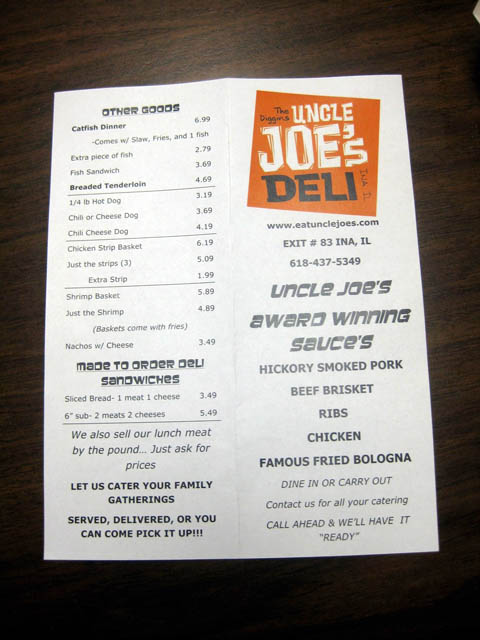 OTHER GOODS
Catfish Dinner 6.99
-Comes w/ Slaw, Fries, and 1 fish
Extra piece of fish 2.79
Fish Sandwich 3.69
Breaded Tenderloin 4.69
1/4 lb Hot Dog 3.19
Chili or Cheese Dog 3.69
Chili Cheese Dog 4.19
Chicken Strip Basket 6.19
Just the strips (3) 5.09
Extra Strip 1.99
Shrimp Basket 5.89
Just the Shrimp 4.89
(Baskets come with fries)
Nachos w/ Cheese 3.49
MADE TO ORDER DELI
SANDWICHES
Sliced Bread- 1 meat 1 cheese 3.49
6" sub- 2 meats 2 cheeses 5.49
We also sell our lunch meat
by the pound... Just ask for
prices
LET US CATER YOUR FAMILY
GATHERINGS
SERVED, DELIVERED, OR YOU
CAN COME PICK IT UP!!!
The
Diggins
UNCLE
JOE'S
DELI
INA, IL
www.eatunclejoes.com
EXIT # 83 INA, IL
618-437-5349
UNCLE JOE'S
AWARD WINNING
SAUCE'S
HICKORY SMOKED PORK
BEEF BRISKET
RIBS
CHICKEN
FAMOUS FRIED BOLOGNA
DINE IN OR CARRY OUT
Contact us for all your catering
CALL AHEAD & WE'LL HAVE IT
"READY"